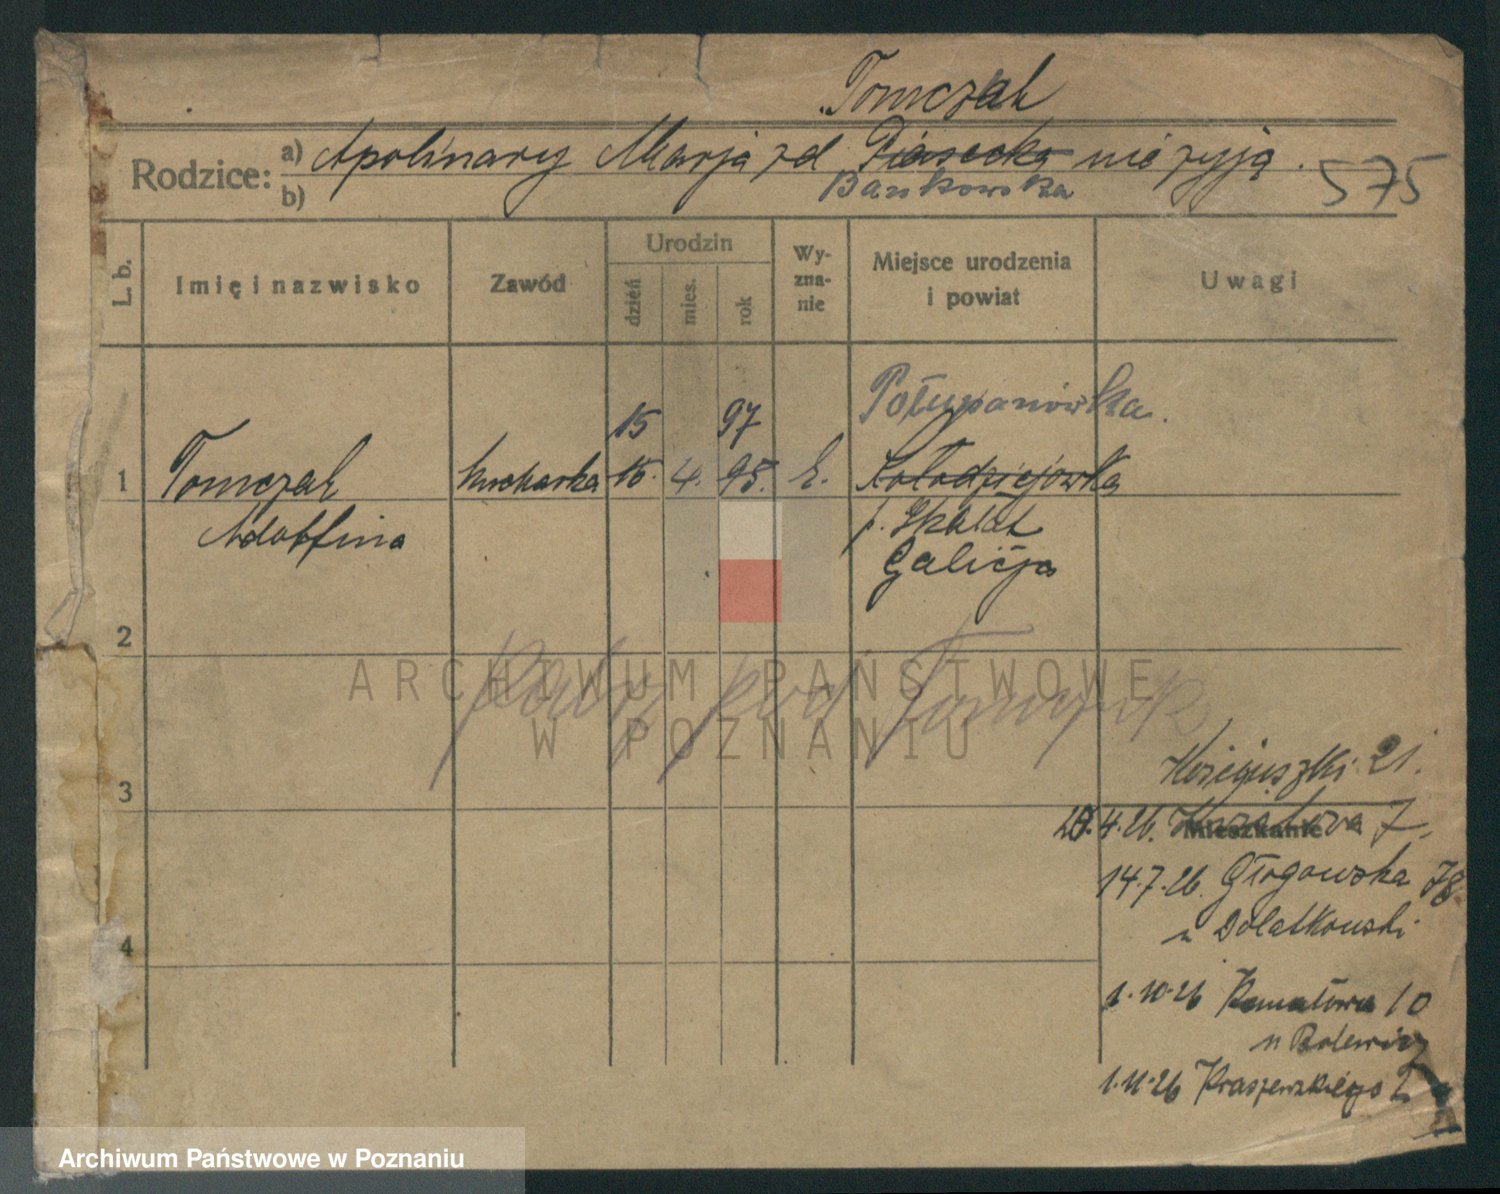 Tomczak
Rodzice: a) Apolinary Marja zd Piasecka nie żyją.
b) Bankowska 575
L. b. Imię i nazwisko Zawód Urodzin Wy-zna-nie Miejsce urodzenia i powiat Uwagi
dzień mies. rok
15 97 Połupanówka.
1 Tomczak kucharka 15. 4. 95. k. Kołodziejówka
Adolfina p. Skałat
Galicja
2
ARCHIWUM PAŃSTWOWE
W POZNANIU
pod Tomczak
3
21.
4.26. 7.
Mieszkanie
14.7.26. Głogowska 78
u Dolatkowski
4
1.10.26 10
u
1.11.26 Kraszewskiego 2
Archiwum Państwowe w Poznaniu